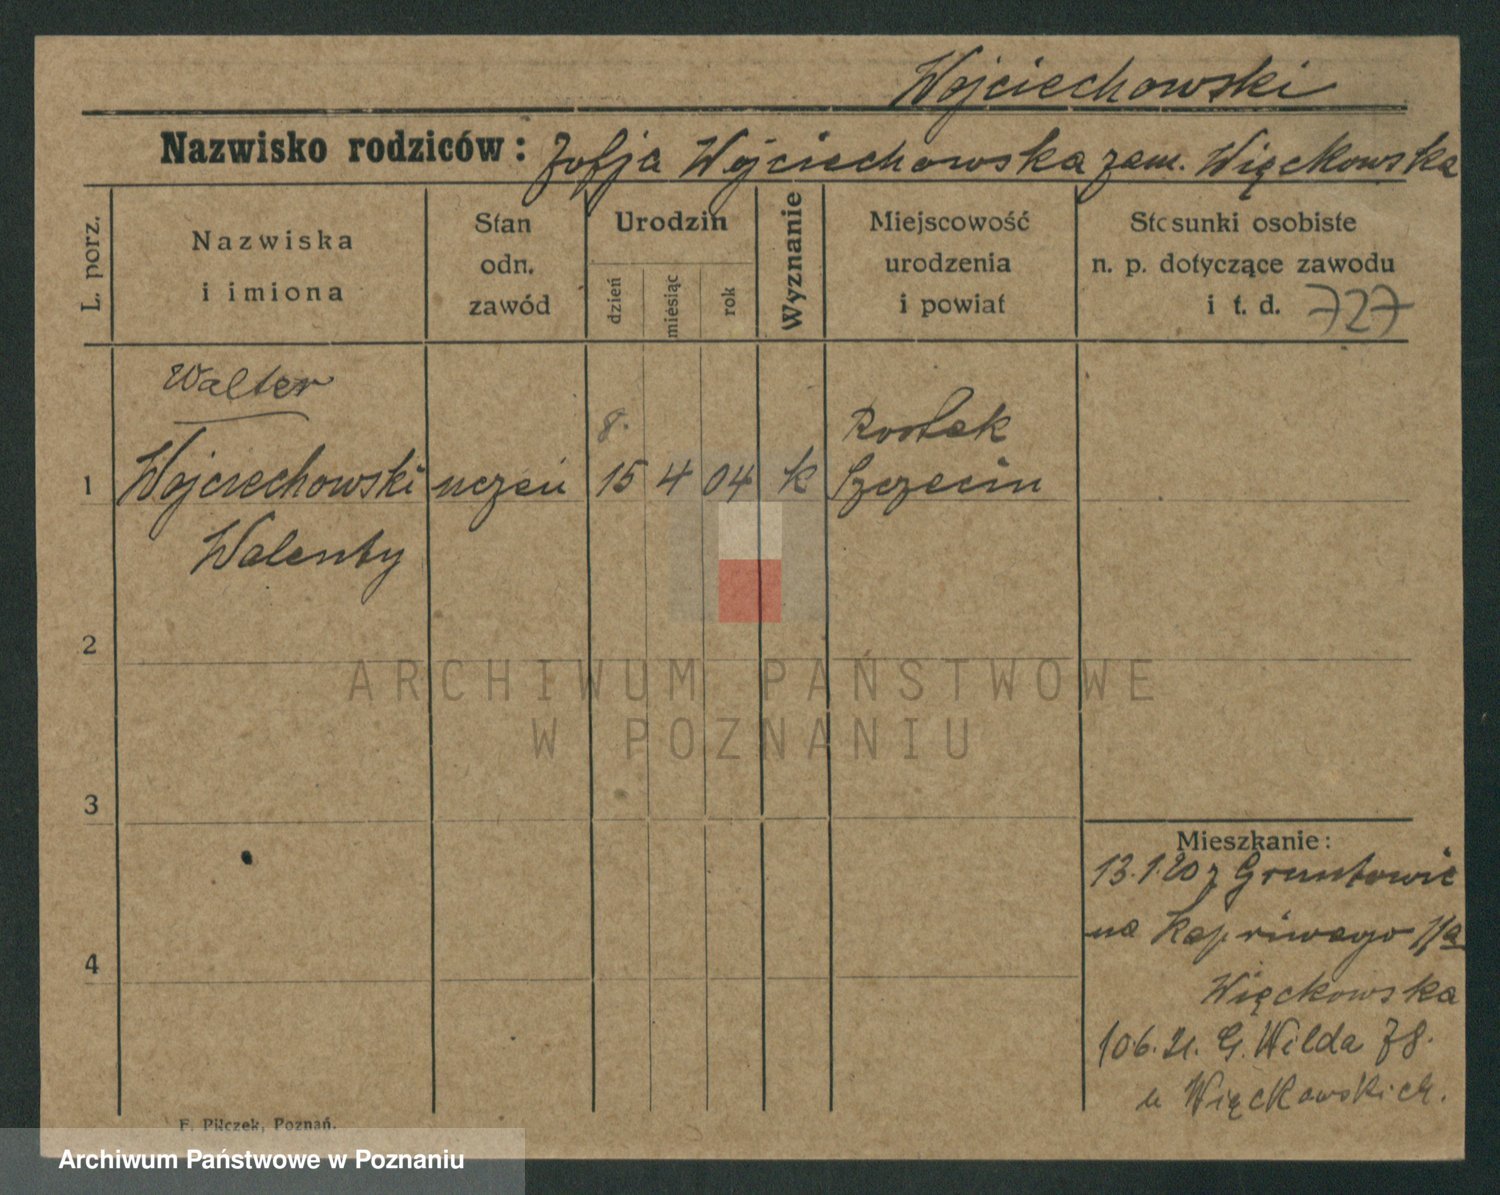 Wojciechowski
Nazwisko rodziców: Zofja Wojciechowska zam. Więckowska
L. porz.
Nazwiska
i imiona
Stan
odn.
zawód
Urodzin
dzień
miesiąc
rok
Wyznanie
Miejscowość
urodzenia
i powiat
Stosunki osobiste
n. p. dotyczące zawodu
i t. d. 727
Walter
8. Rostek
1 Wojciechowski uczeń 15 4 04 k Szczecin
Walenty
2
ARCHIWUM PAŃSTWOWE
W POZNANIU
3
Mieszkanie:
13.1.20 z Gruntowic
na
4
Więckowska
10.6.21. G. Wilda 78.
u Więckowskich.
F. Pilczek, Poznań.
Archiwum Państwowe w Poznaniu